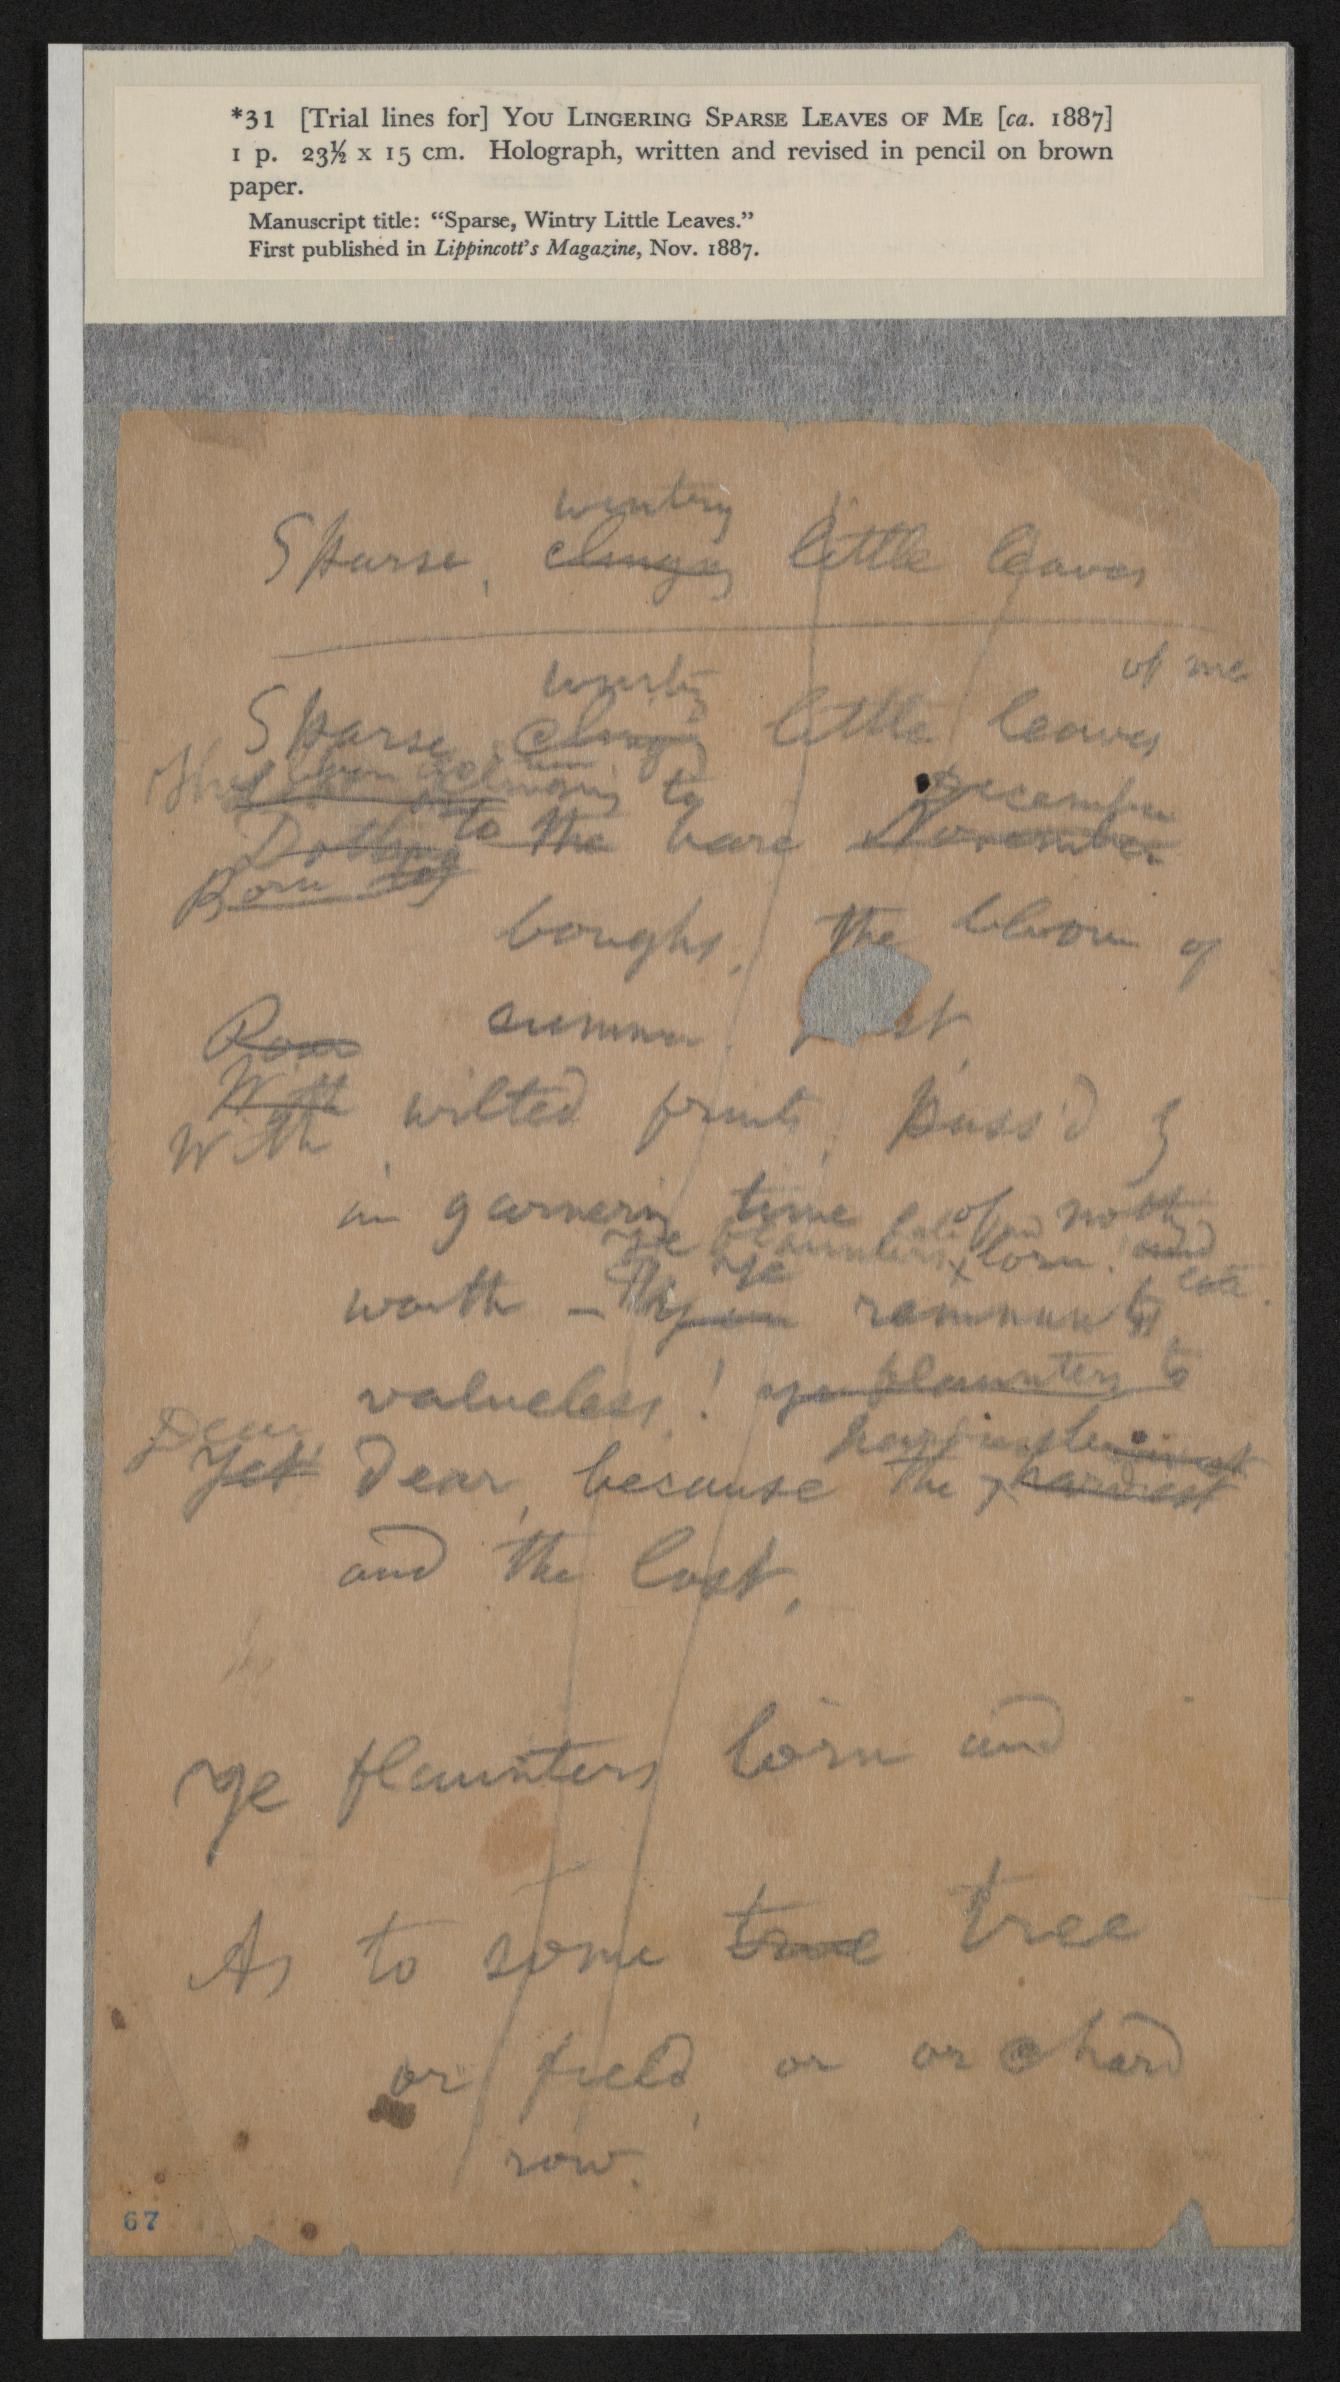 *31 [Trial lines for] You Lingering Sparse Leaves of Me [ca. 1887]
1 p. 23½ x 15 cm. Holograph, written and revised in pencil on brown
paper.
Manuscript title: “Sparse, Wintry Little Leaves.”
First published in Lippincott's Magazine, Nov. 1887.
wintry
Sparse, clinging little leaves
of me
wintry
Sparse, clinging little leaves
clinging to December
Dotting to the bare November
Born
boughs, the bloom of
summer
With
With wilted fruits, pass'd
in garnering time of no
Ye flaunters lorn! and
Ye
worth — remnants
valueless! ye flaunters to
Dear
Yet dear, because the hardiest
and the last.
ye flaunters lorn and
As to some true tree
or field, or orchard
row.
67